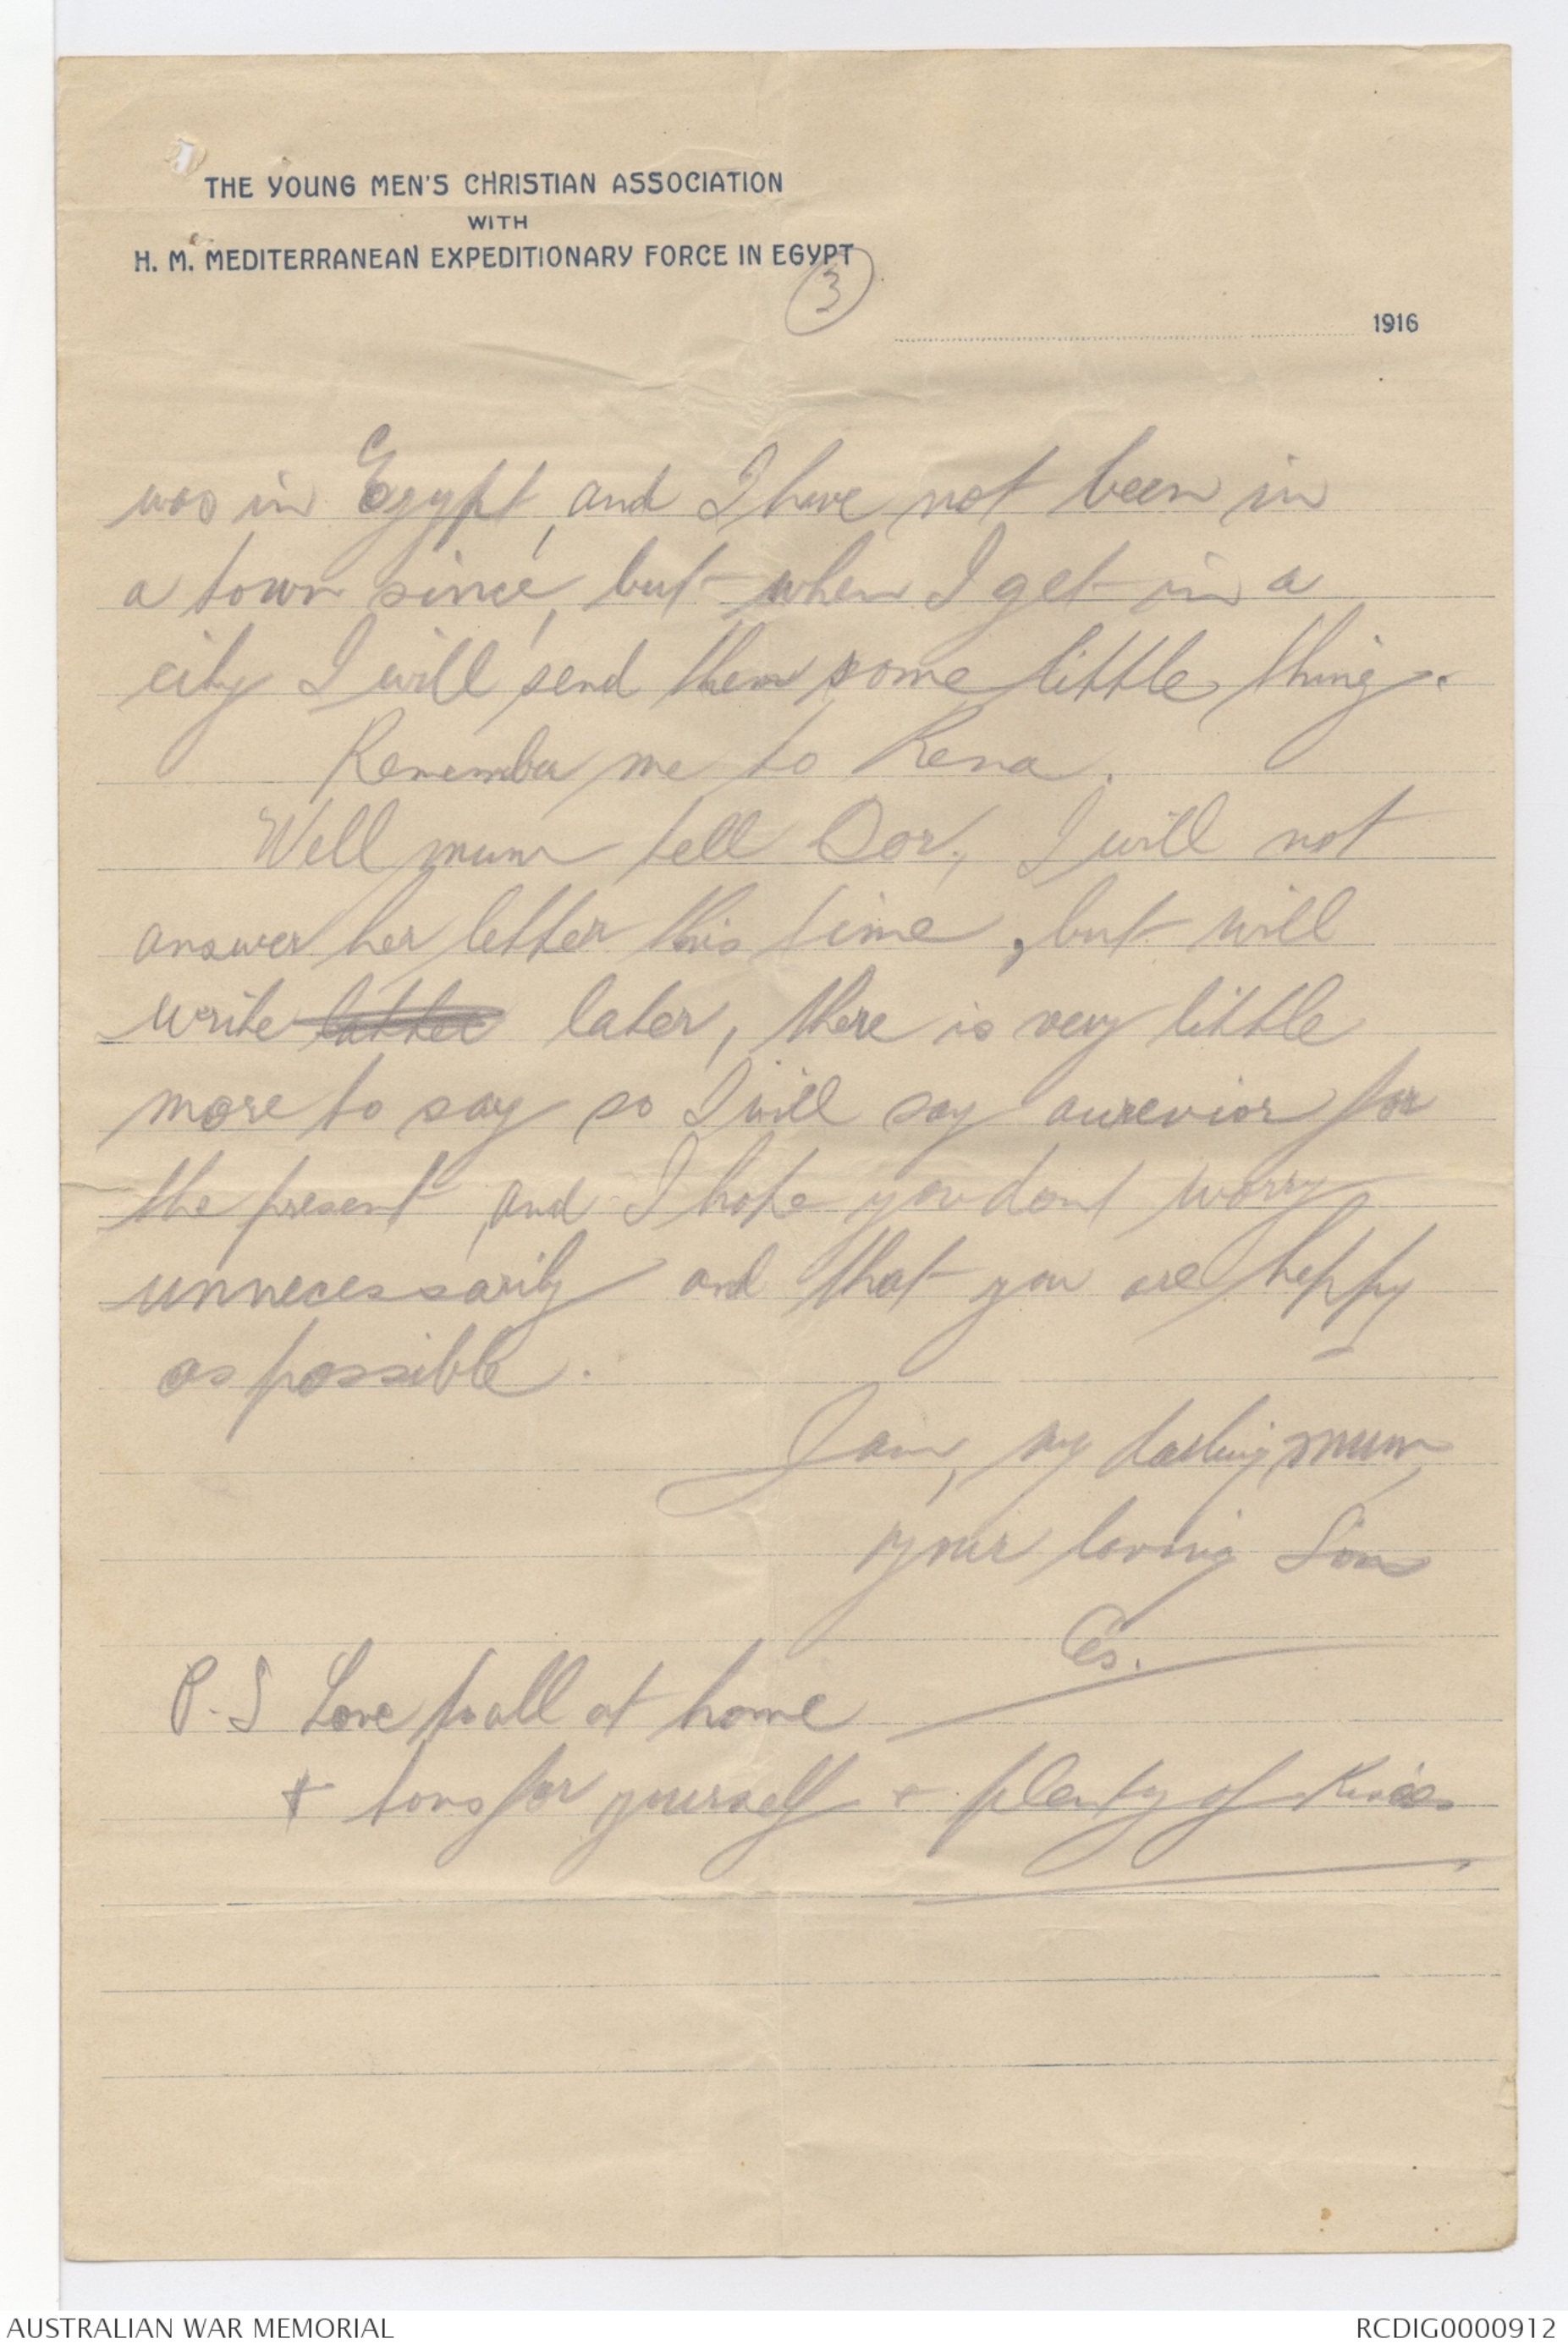 THE YOUNG MEN'S CHRISTIAN ASSOCIATION
WITH
H. M. MEDITERRANEAN EXPEDITIONARY FORCE IN EGYPT
3
1916
was in Egypt, and I have not been in
a town since, but when I get in a
city I will send them some little thing.
Remember me to Rena.
Well mum tell Dor, I will not
answer her letter this time, but will
write latter later, there is very little
more to say so I will say aurevior for
the present, and I hope you dont worry
unnecessarily and that you are happy
as possible.
I am, my darling mum,
your loving Son
Ces.
P.S Love to all at home
+ tons for yourself + plenty of Kisses
AUSTRALIAN WAR MEMORIAL
RCDIG0000912